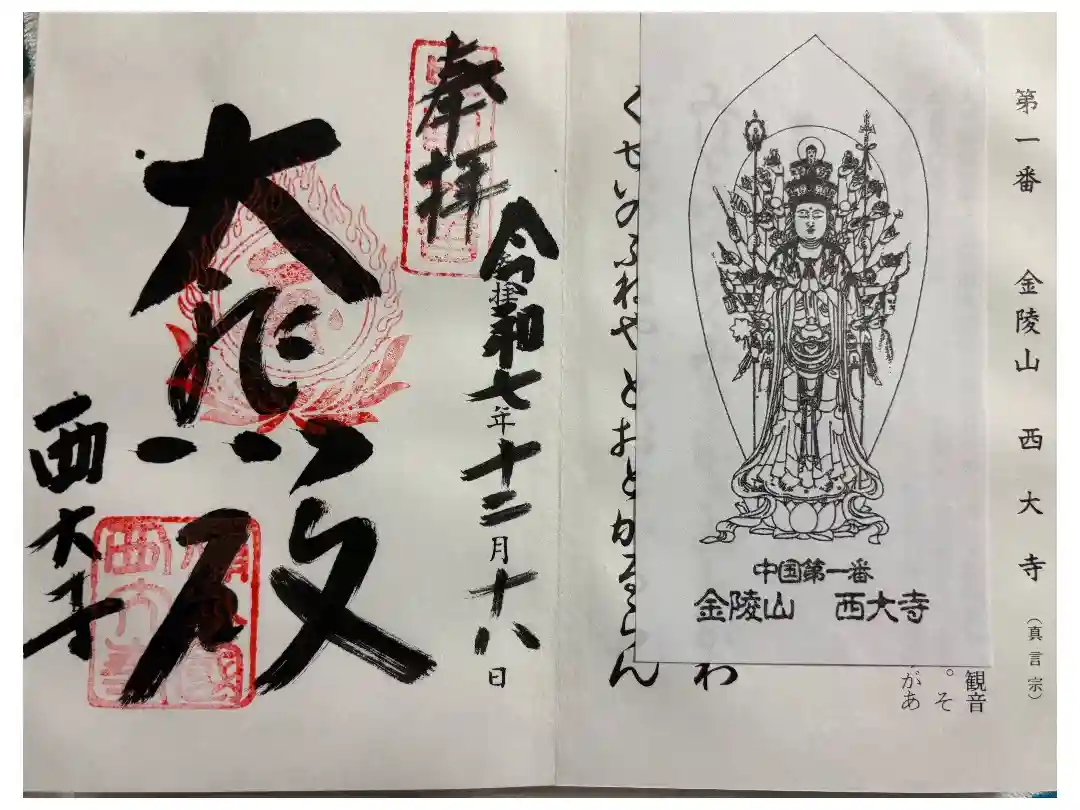 第一番　金陵山　西大寺（真言宗）
観音
。そ
があ
中国第一番
金陵山　西大寺
わ
くせいのふねや　とおとかるらん
奉拝
令和七年十二月十八日
大悲殿
西大寺